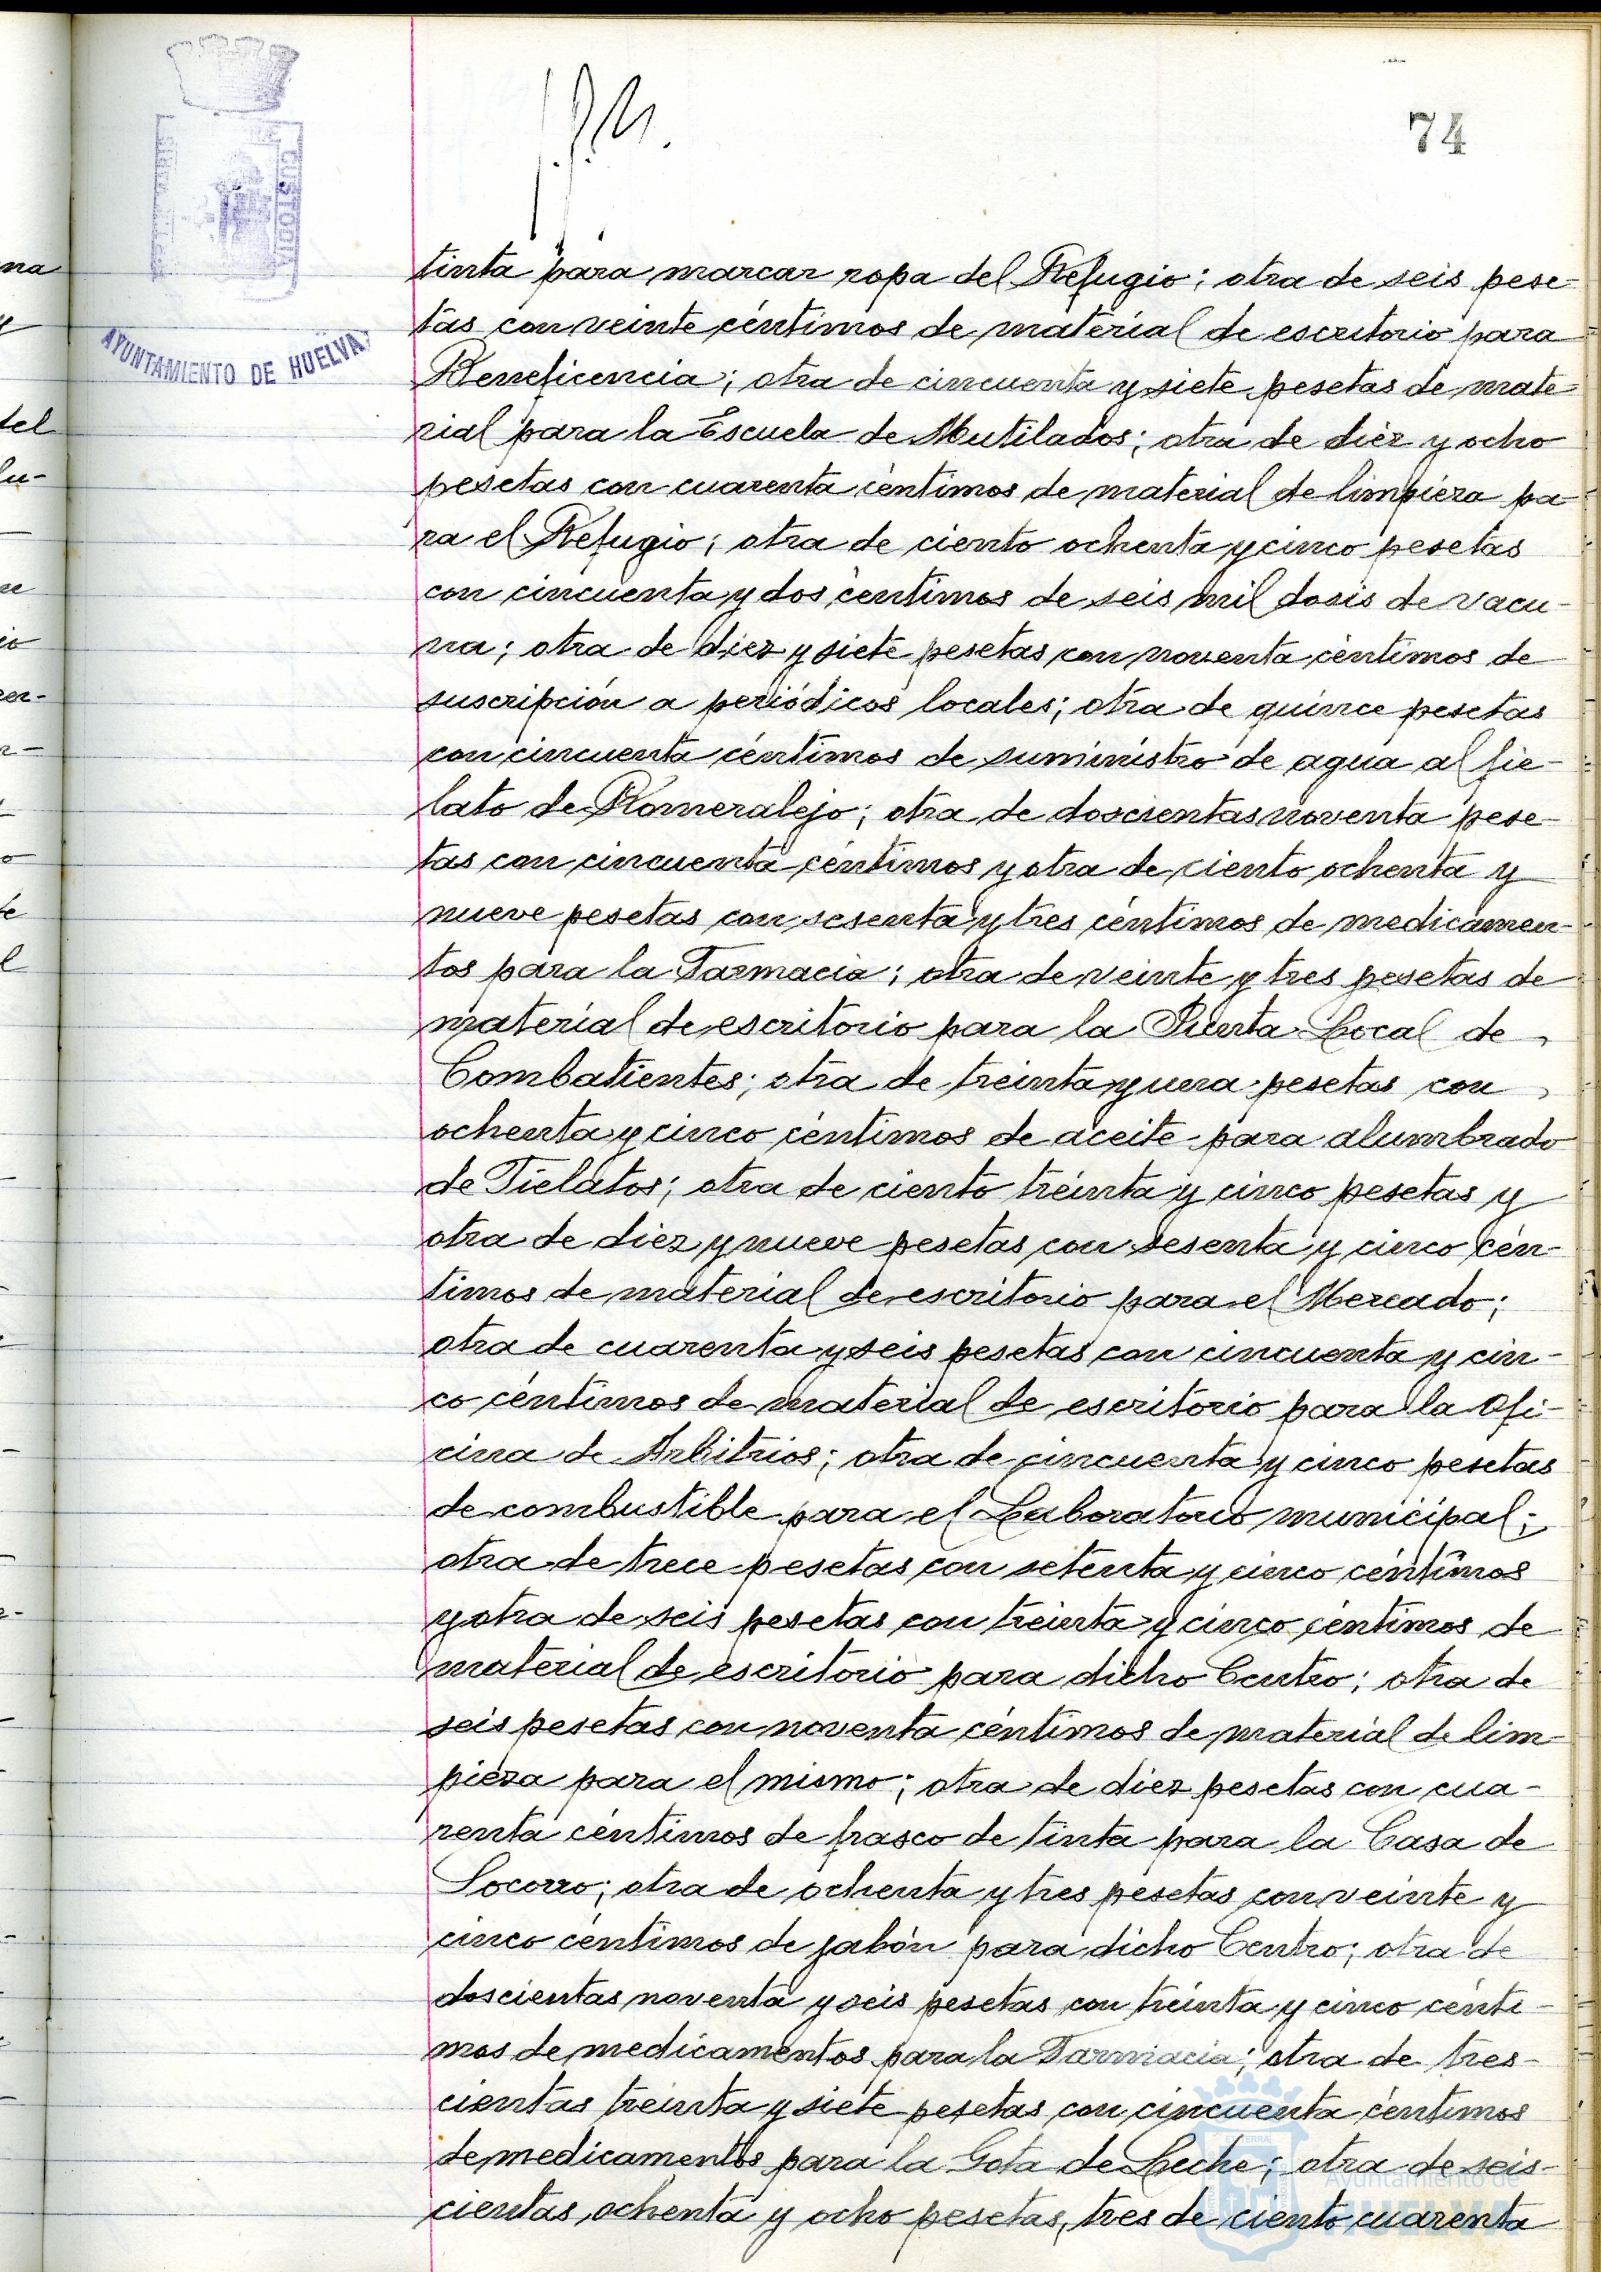 74
CUSTODIA
AYUNTAMIENTO DE HUELVA
tinta para marcar ropa del Refugio; otra de seis pese-
tas con veinte céntimos de material de escritorio para
Beneficencia; otra de cincuenta y siete pesetas de mate-
rial para la Escuela de Mutilados; otra de diez y ocho
pesetas con cuarenta céntimos de material de limpieza pa-
ra el Refugio; otra de ciento ochenta y cinco pesetas
con cincuenta y dos céntimos de seis mil dosis de vacu-
na; otra de diez y siete pesetas con noventa céntimos de
suscripción a periódicos locales; otra de quince pesetas
con cincuenta céntimos de suministro de agua al fie-
lato de Romeralejo; otra de doscientas noventa pese-
tas con cincuenta céntimos y otra de ciento ochenta y
nueve pesetas con sesenta y tres céntimos de medicamen-
tos para la Farmacia; otra de veinte y tres pesetas de
material de escritorio para la Junta Local de
Combatientes; otra de treinta y una pesetas con
ochenta y cinco céntimos de aceite para alumbrado
de Fielatos; otra de ciento treinta y cinco pesetas y
otra de diez y nueve pesetas con sesenta y cinco cén-
timos de material de escritorio para el Mercado;
otra de cuarenta y seis pesetas con cincuenta y cin-
co céntimos de material de escritorio para la Ofi-
cina de Arbitrios; otra de cincuenta y cinco pesetas
de combustible para el Laboratorio municipal;
otra de trece pesetas con setenta y cinco céntimos
y otra de seis pesetas con treinta y cinco céntimos de
material de escritorio para dicho Centro; otra de
seis pesetas con noventa céntimos de material de lim-
pieza para el mismo; otra de diez pesetas con cua-
renta céntimos de frasco de tinta para la Casa de
Socorro; otra de ochenta y tres pesetas con veinte y
cinco céntimos de jabón para dicho Centro; otra de
doscientas noventa y seis pesetas con treinta y cinco cénti-
mos de medicamentos para la Farmacia; otra de tres-
cientas treinta y siete pesetas con cincuenta céntimos
de medicamentos para la Gota de Leche; otra de seis-
cientas, ochenta y ocho pesetas, tres de ciento cuarenta
Ayuntamiento de
HUELVA